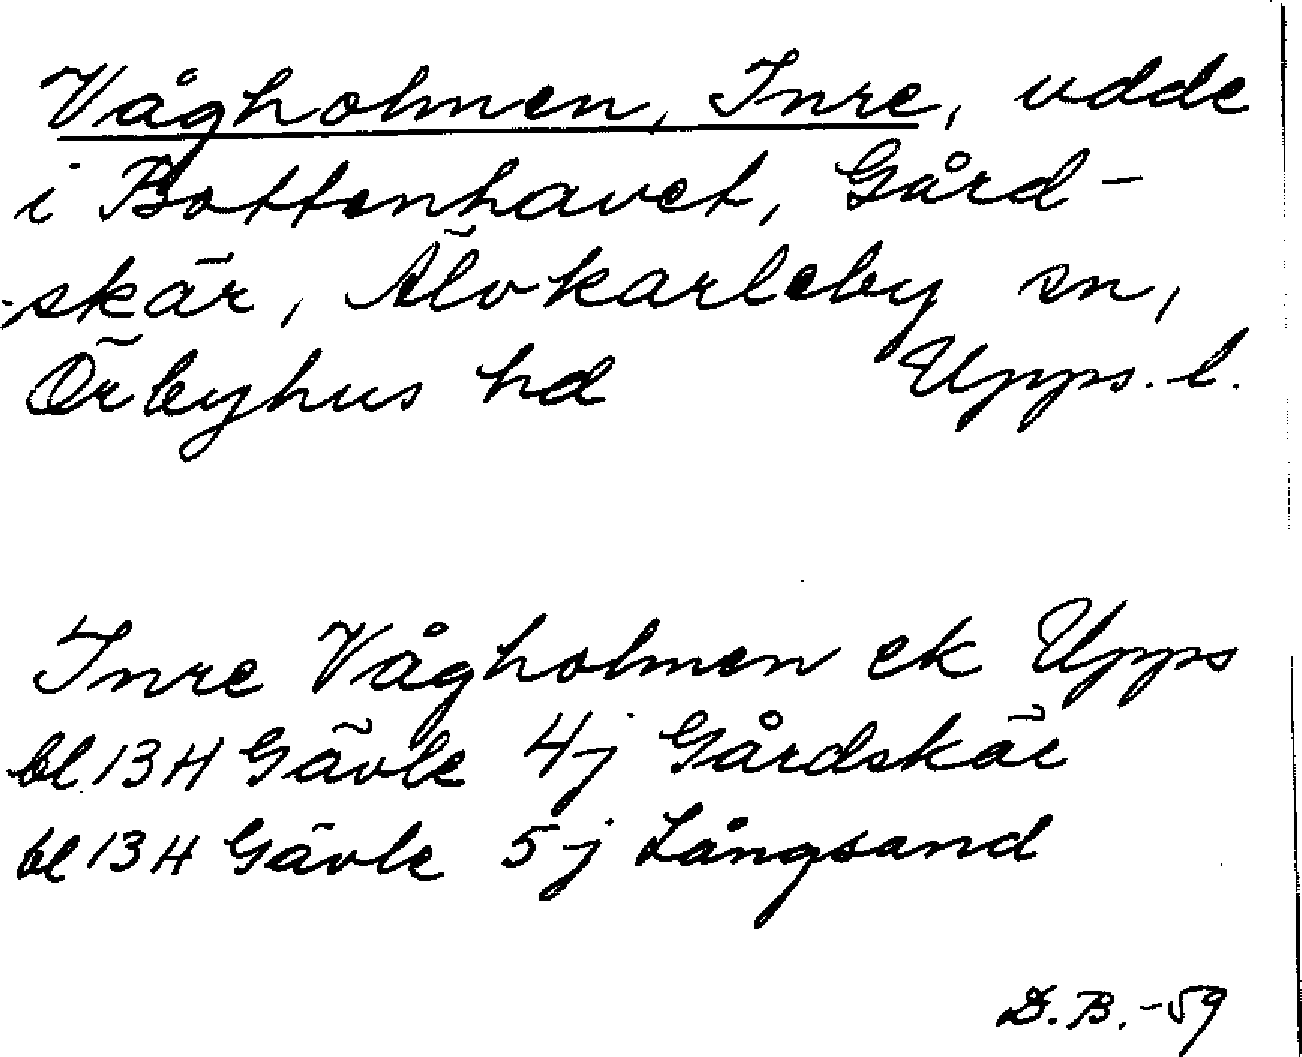 Vågholmen, Inre, udde
i Bottenhavet, Gård-
skär, Älvkarleby sn,
Örbyhus hd Upps. l.
Inre Vågholmen ek Upps
bl 13H Gävle 4j Gårdskär
bl 13H Gävle 5j Långsand
D.B.-59